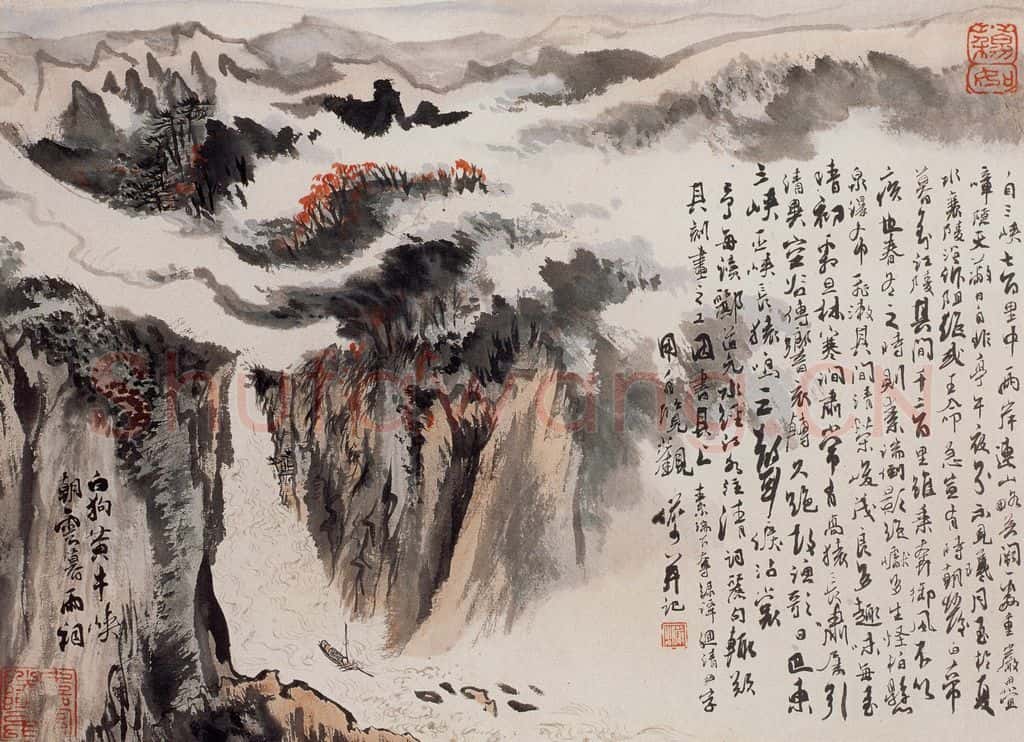 自三峡七百里中兩岸連山略無闕處重巖疊
嶂隐天蔽日自非亭午夜分不見曦月至於夏
水襄陵沿泝阻絕或王命急宣有時朝發白帝
暮至江陵其間千二百里雖乘奔御風不以
疾也春冬之時則素湍迴影絕巘多生怪柏懸
泉瀑布飛漱其間清榮峻茂良多趣味每至
晴初霜旦林寒澗肅常有高猿長嘯屬引
清異空谷傳響哀轉久絕故漁歌曰巴東
三峡巫峡長猿鳴三聲淚沾裳
予每讀酈道元水經江水注清詞麗句輒歎
其刻畫之工因書其上 素湍下奪綠潭迴清四字
用自觀 儼少并記
白狗黄牛峡
朝雲暮雨祠
Shufawang.CN